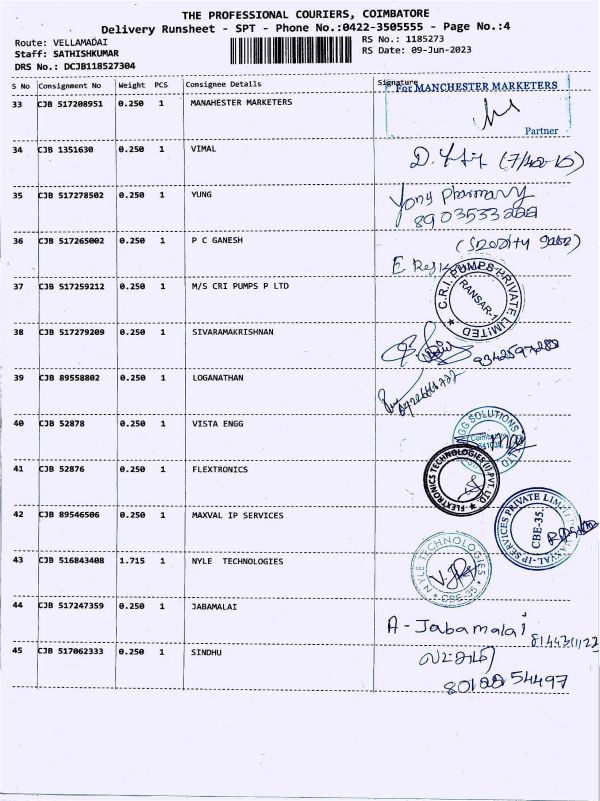 THE PROFESSIONAL COURIERS, COIMBATORE
Delivery Runsheet - SPT - Phone No.:0422-3505555 - Page No.:4
Route: VELLAMADAI
Staff: SATHISHKUMAR
DRS No.: DCJB118527304
RS No.: 1185273
RS Date: 09-Jun-2023
S No Consignment No Weight PCS Consignee Details Signature
33 CJB 517208951 0.250 1 MANAHESTER MARKETERS
For MANCHESTER MARKETERS
Partner
34 CJB 1351630 0.250 1 VIMAL
35 CJB 517278502 0.250 1 YUNG
Yong Pharmavy
36 CJB 517265002 0.250 1 P C GANESH
37 CJB 517259212 0.250 1 M/S CRI PUMPS P LTD
C.R.I. PUMPS PRIVATE LIMITED
38 CJB 517279209 0.250 1 SIVARAMAKRISHNAN
39 CJB 89558802 0.250 1 LOGANATHAN
40 CJB 52878 0.250 1 VISTA ENGG
41 CJB 52876 0.250 1 FLEXTRONICS
FLEXTRONICS TECHNOLOGIES (I) PVT LTD
42 CJB 89546506 0.250 1 MAXVAL IP SERVICES
MAXVAL-IP-SERVICES PRIVATE LIMITED
CBE-35.
43 CJB 516843408 1.715 1 NYLE TECHNOLOGIES
NYLE TECHNOLOGIES
CBE-35
44 CJB 517247359 0.250 1 JABAMALAI
A - Jabamalai
45 CJB 517062333 0.250 1 SINDHU